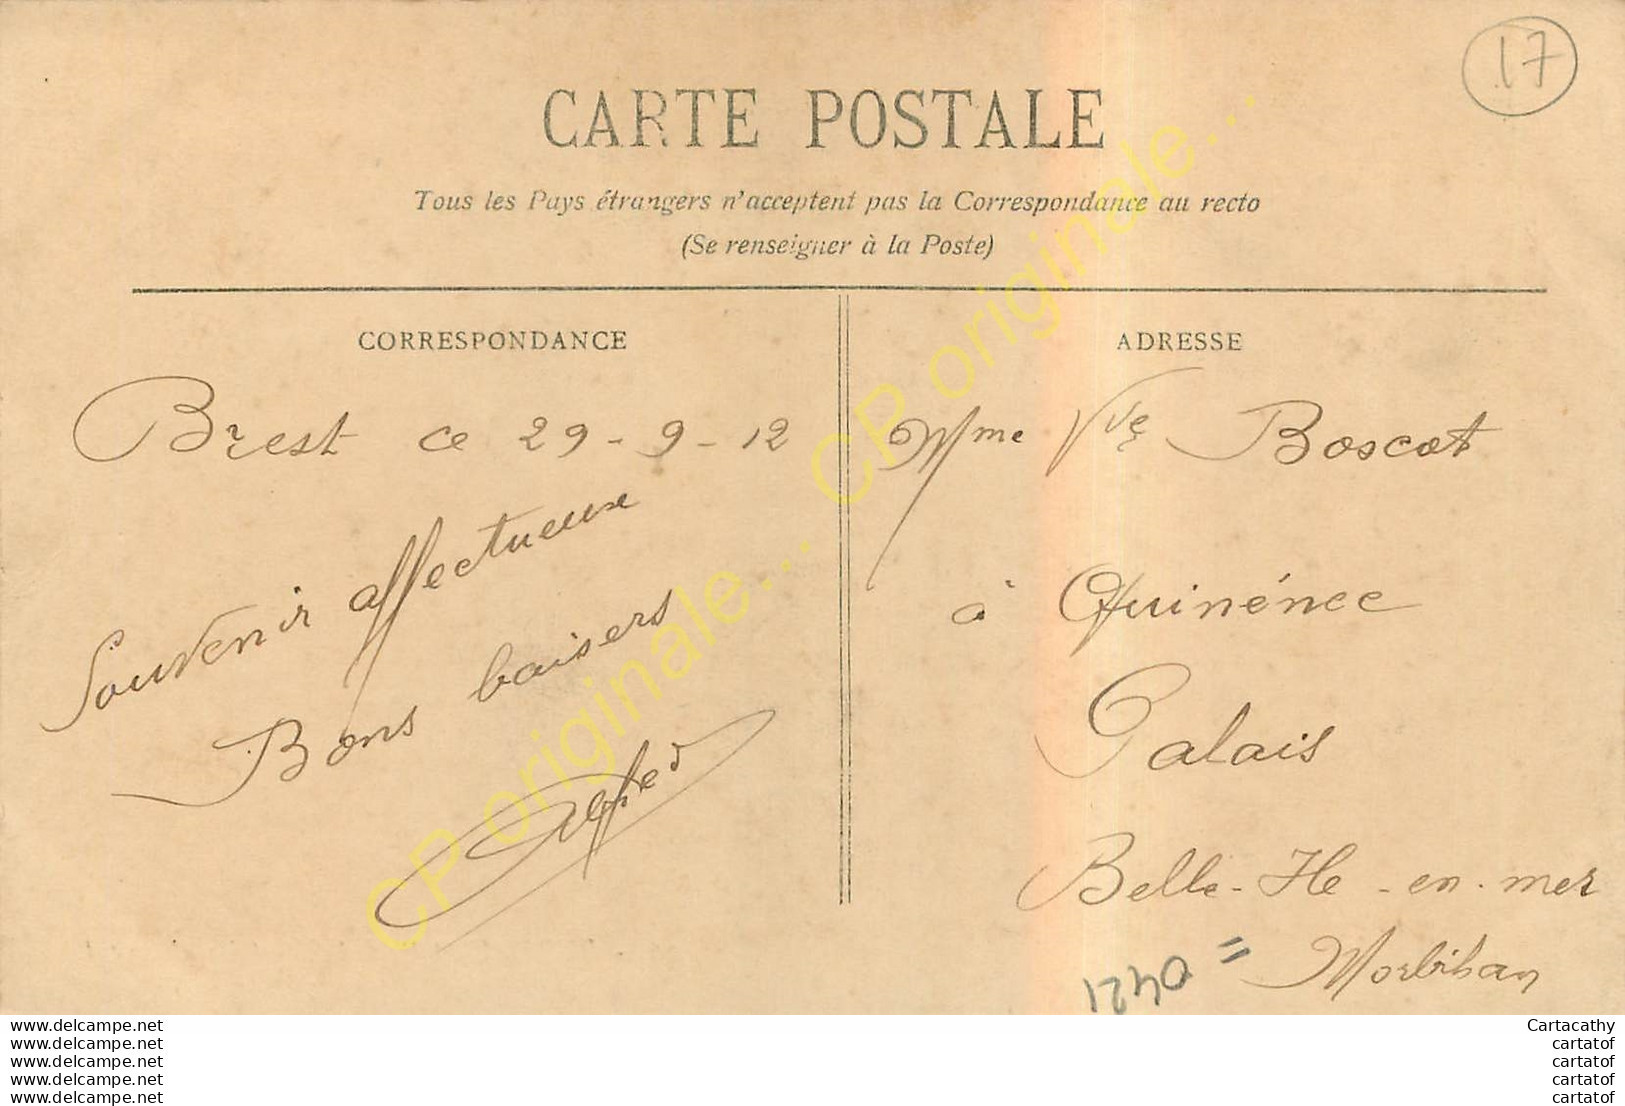 17
CARTE POSTALE
Tous les Pays étrangers n'acceptent pas la Correspondance au recto
(Se renseigner à la Poste)
CORRESPONDANCE
Brest ce 29-9-12
Souvenir affectueux
Bons baisers
Alfred
ADRESSE
Mme Vve Boscat
à Quinénec
Palais
Belle-Ile-en-mer
Morbihan
CP originale... CP originale...
www.delcampe.net
www.delcampe.net
www.delcampe.net
www.delcampe.net
www.delcampe.net
Cartacathy
cartatof
cartatof
cartatof
cartatof